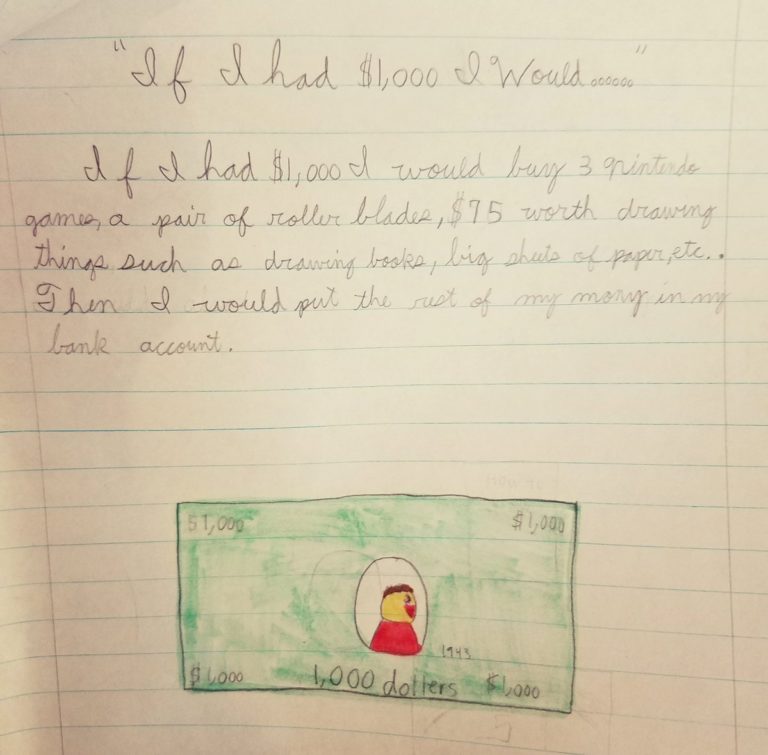 "If I had $1,000 I Would......"
If I had $1,000 I would buy 3 nintendo
games, a pair of roller blades, $75 worth drawing
things such as drawing books, big sheets of paper, etc..
Then I would put the rest of my mony in my
bank account.
$1,000 $1,000
1943
$1,000 1,000 dollers $1,000